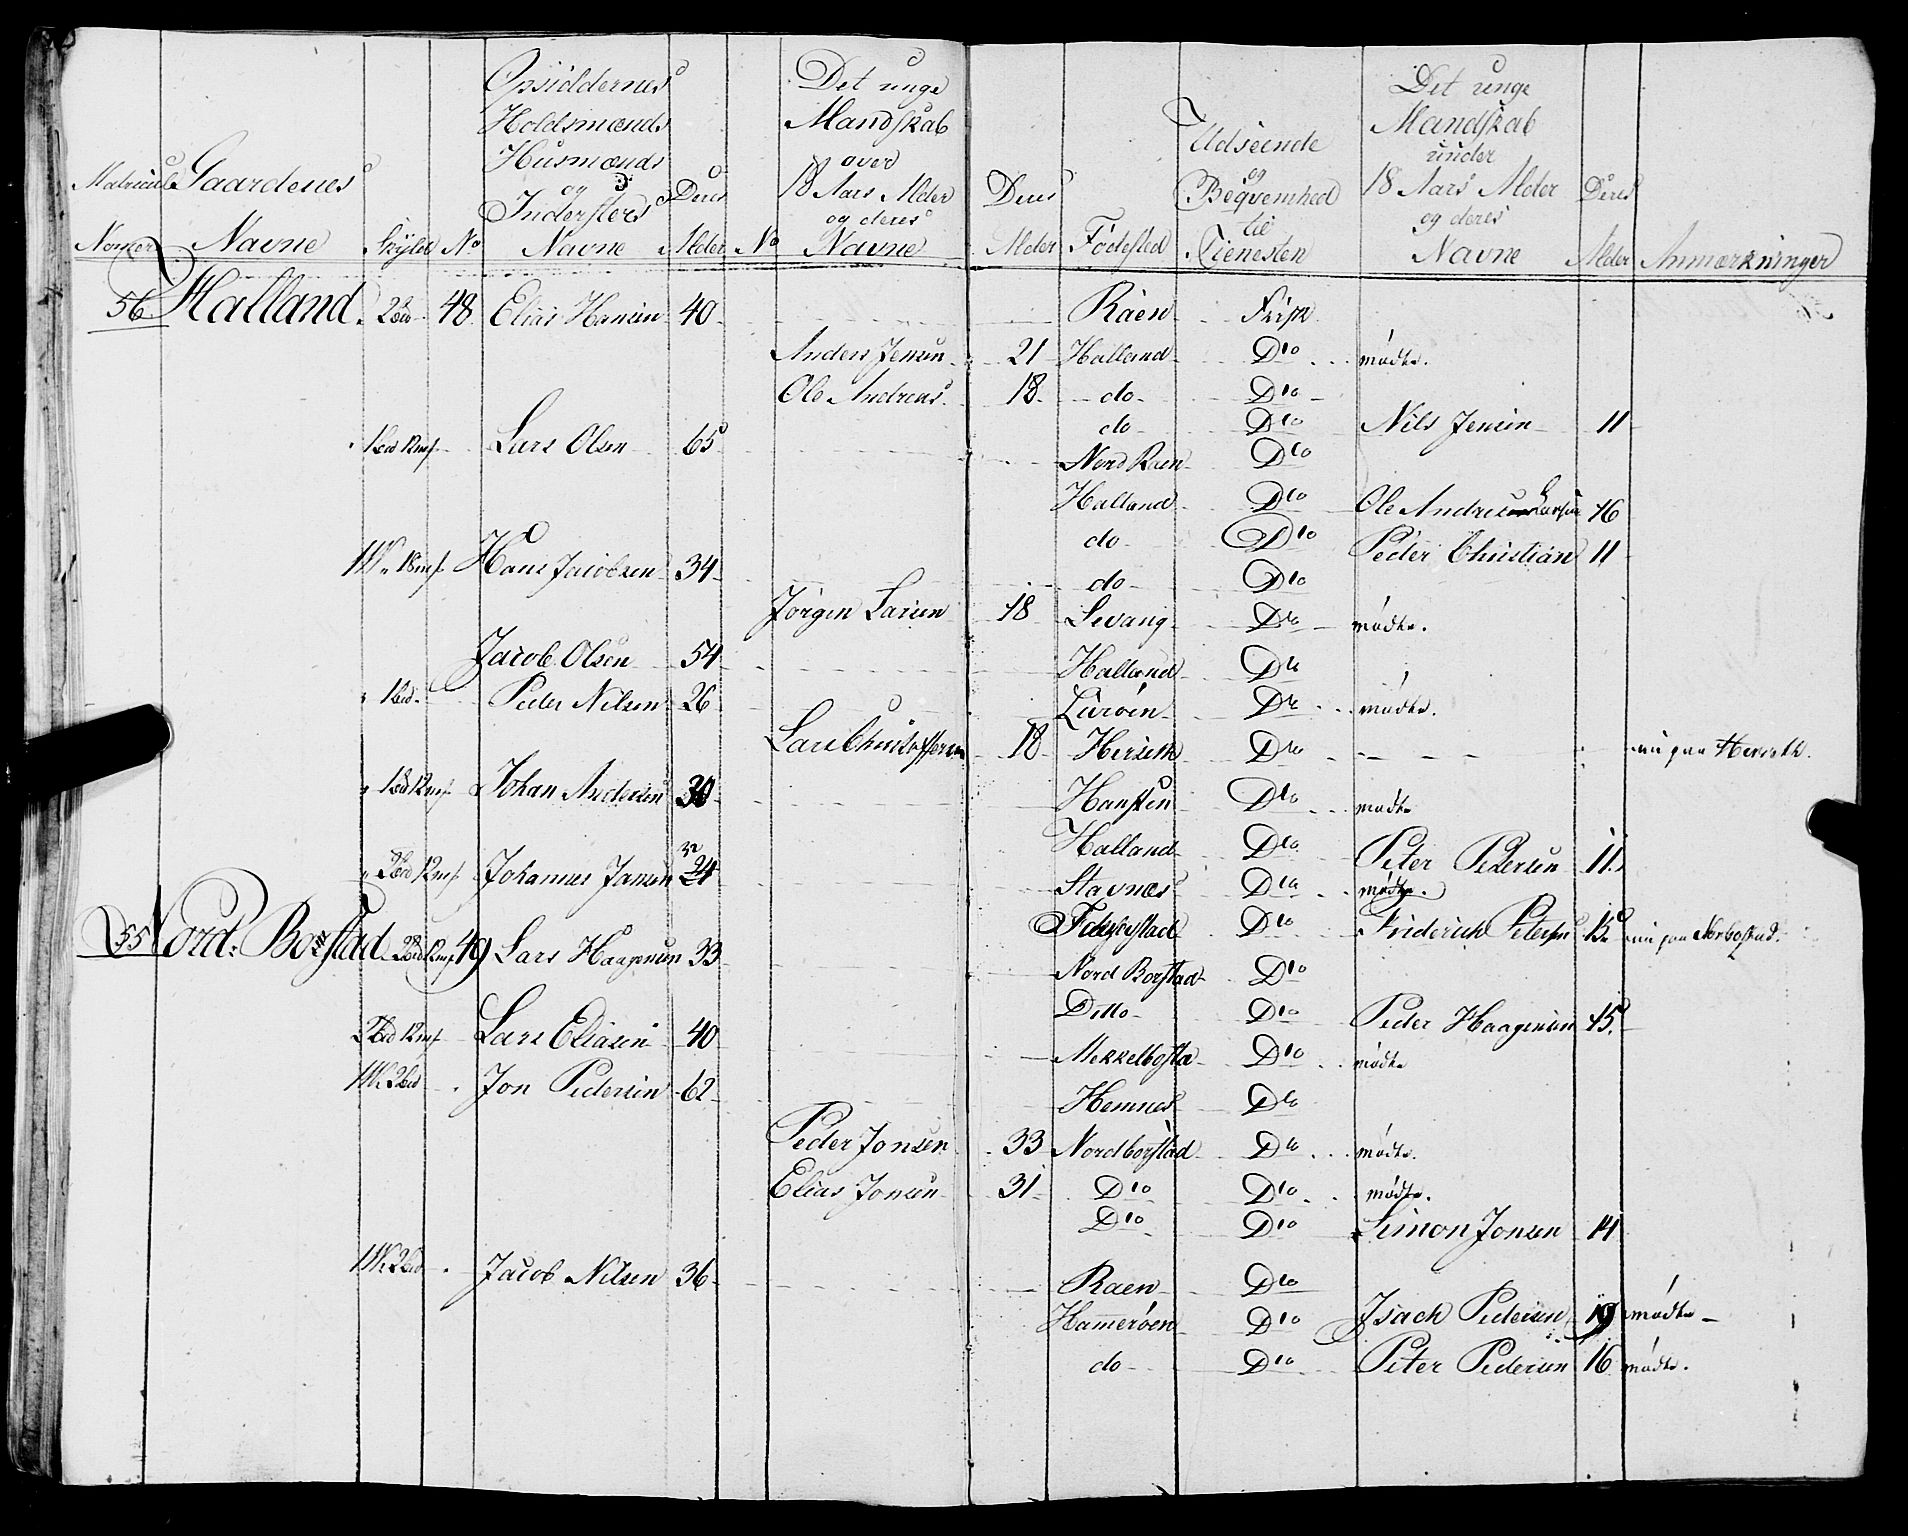 Matricul Norxer
Gaardenes Navne
Skyld
No
Opsiddernes Holdsmænds Husmænds og Inderster's Navne
Deres Alder
No
Det unge Mandskab over 18 Aars Alder og deres Navne
Deres Alder
Fødested
Udseende og Beqvemhed til Tienesten
Det unge Mandskab under 18 Aars Alder og deres Navne
Deres Alder
Anmærkninger
56 Halland 48 Elias Hansen 40 Raen Frisk
Anders Jensen 21 Halland Dto mødte.
Ole Andreas 18 do Dto
do Dto Nils Jensen 11
Lars Olsen 65 Nord Raen Dto
Halland Dto Ole Andreas Larsen 16
do Dto Peder Christian 11
Hans Jacobsen 34 do Dto
Jørgen Larsen 18 Levang Dto mødte.
Jacob Olsen 54 Halland Dto
Peder Nilsen 26 Lurøen Dto mødte.
Lars Christoffersen 18 Herseth Dto
Johan Andersen 30 Hansten Dto mødte
Halland Dto Peter Pedersen 11
Johannes Jansen 24 Stavnæs Dto mødte.
Dto Friderich Petersen
55 Nord Borstad 49 Lars Haagensen 33 Nord Borstad Dto
Ditto Dto Peder Haagensen 15
Lars Eliasen 40 Mekkelbosta Dto mødte
Jon Pedersen 62 Hemnes Dto
Peder Jonsen 33 Nordborstad Dto mødte.
Elias Jonsen 31 Dto Dto mødte.
Dto Dto Simon Jonsen 14
Jacob Nilsen 36 Raen Dto
Hamerøen Dto Isach Pedersen 19 mødte
do Dto Peter Pedersen 16 mødte.